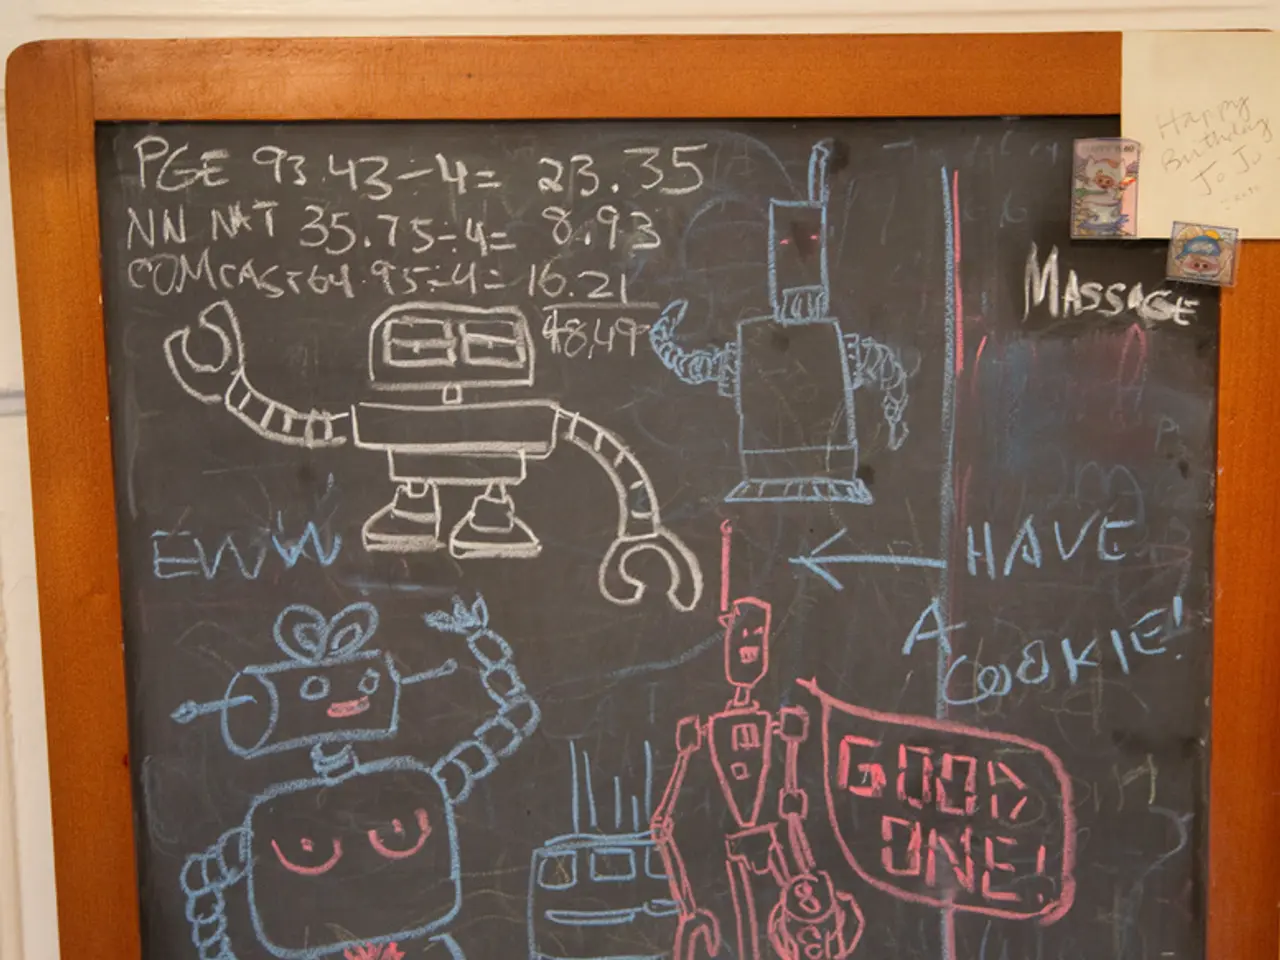 PGE 93.43÷4= 23.35
NN NAT 35.75÷4= 8.93
COMCAST 64.95÷4= 16.21
48.49
Happy
Birthday
JoJo
MASSAGE
EWW
HAVE
A
COOKIE!
GOOD
ONE!